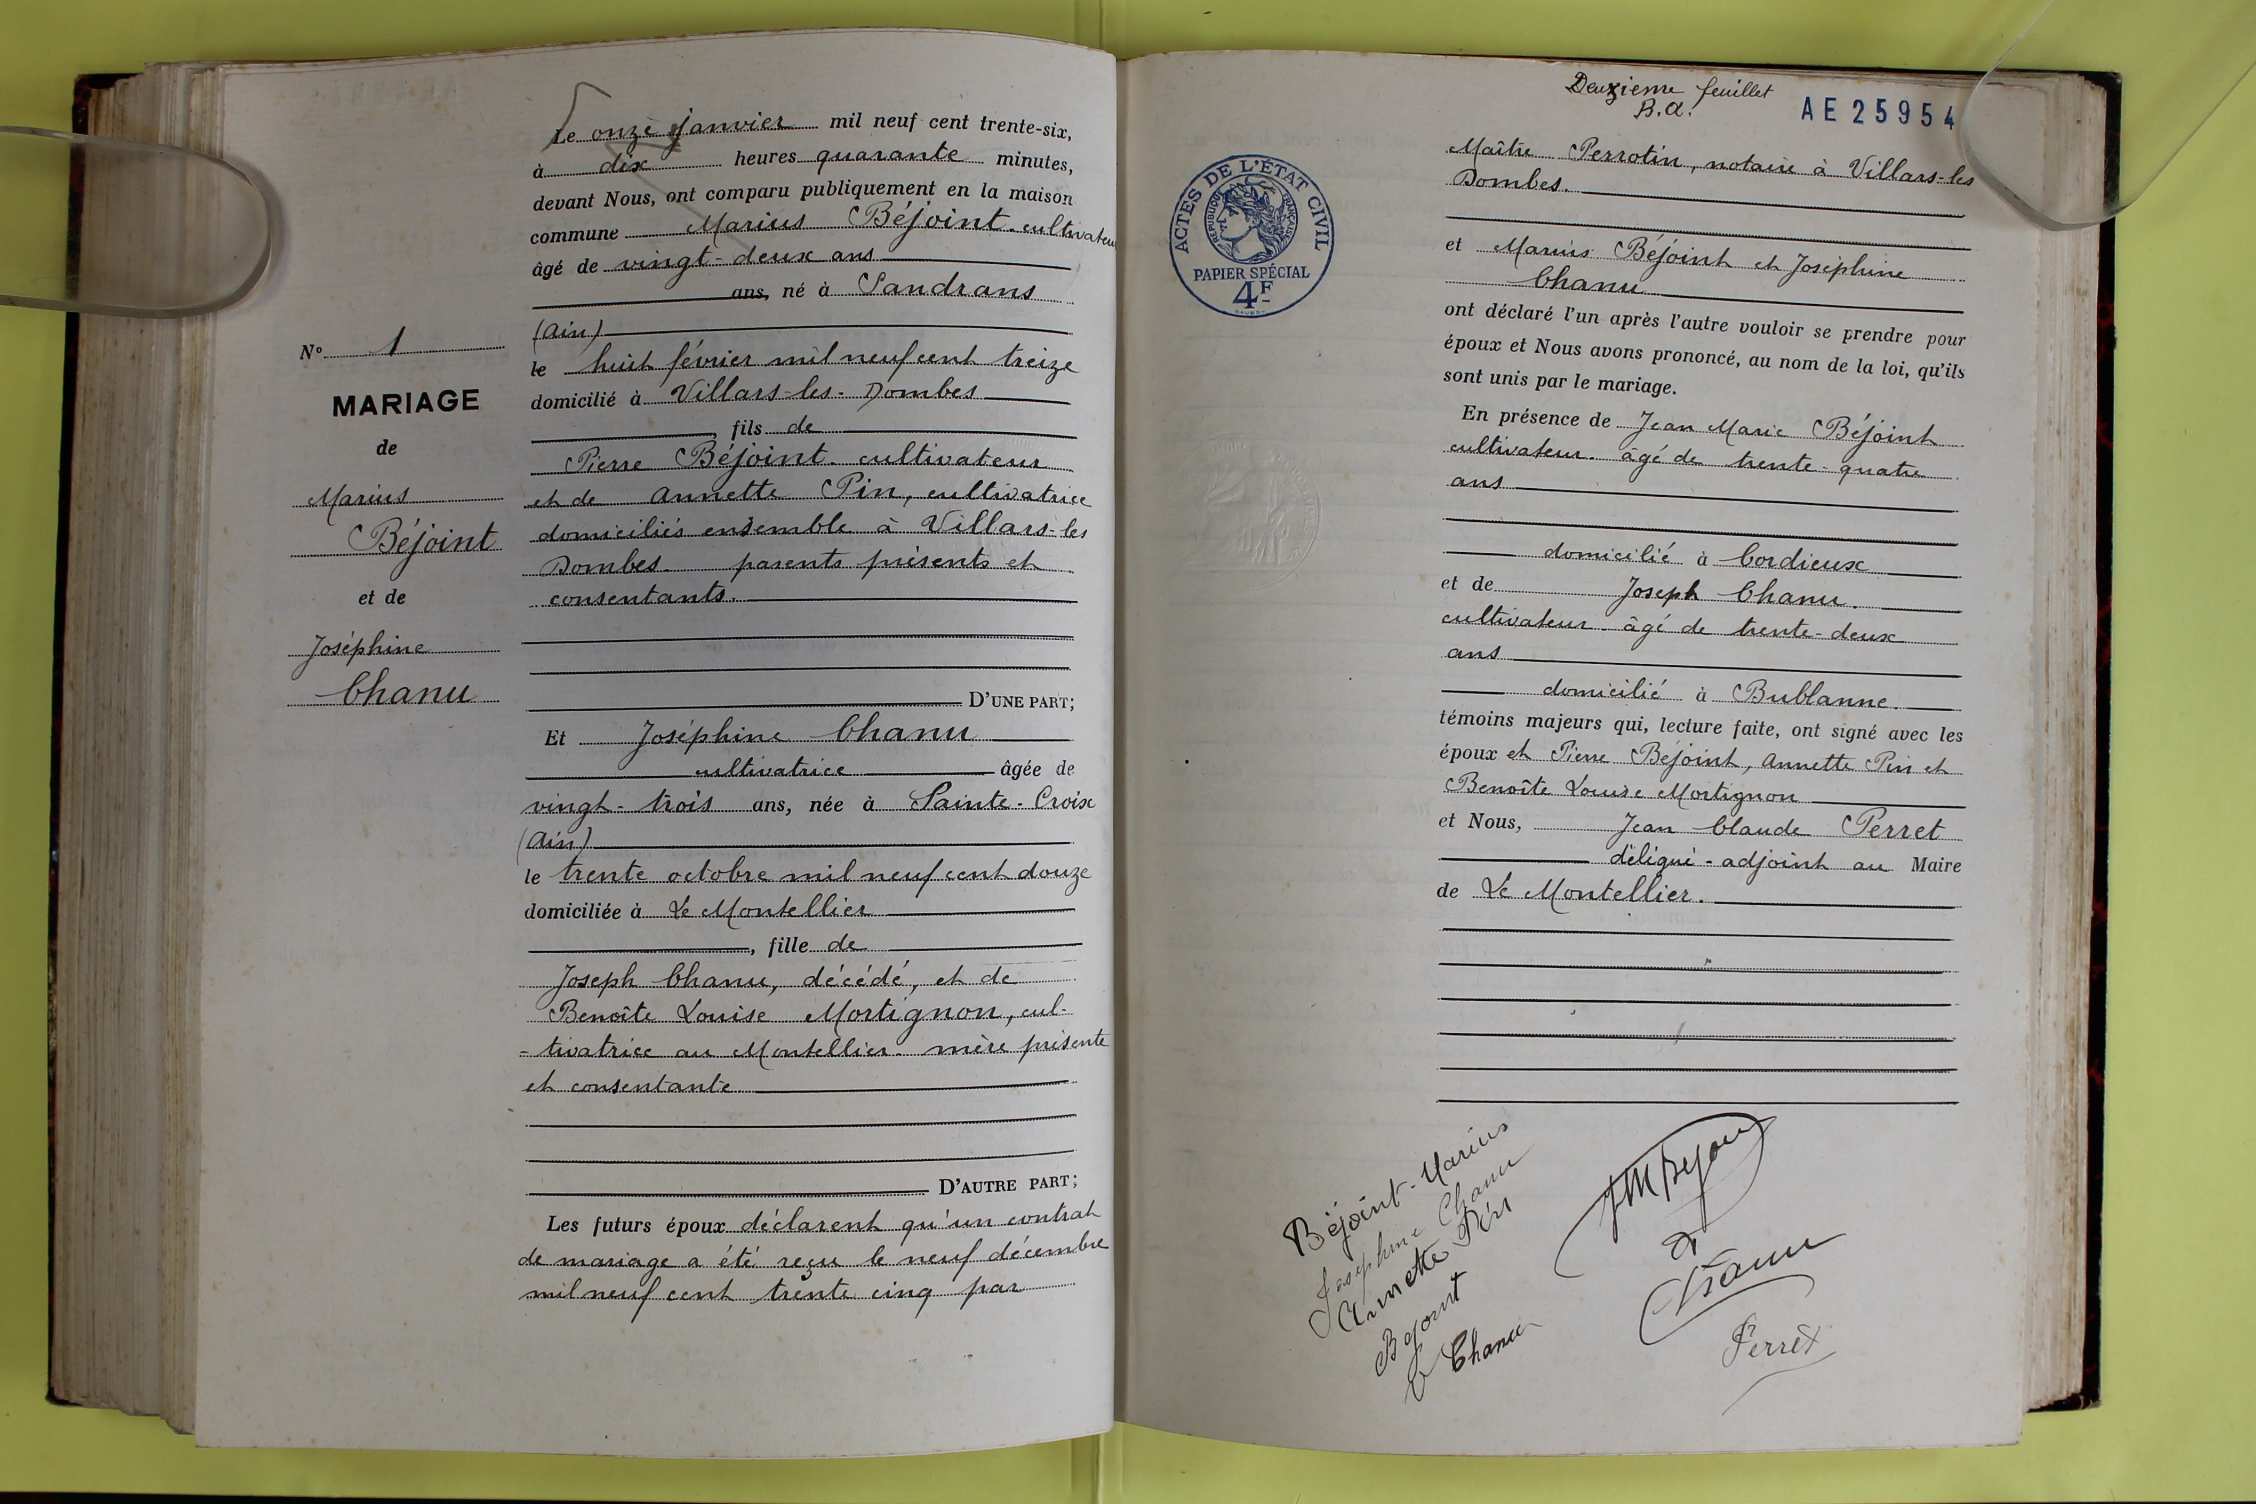 N° 1
MARIAGE
de
Marius
Béjoint
et de
Joséphine
Chanu
Le onze janvier mil neuf cent trente-six,
à dix heures quarante minutes,
devant Nous, ont comparu publiquement en la maison
commune Marius Béjoint. cultivateur
âgé de vingt-deux ans
ans, né à Sandrans
(Ain)
le huit février mil neuf cent treize
domicilié à Villars-les-Dombes
fils de
Pierre Béjoint. cultivateur
et de Annette Pin, cultivatrice
domiciliés ensemble à Villars-les
Dombes. parents présents et
consentants.
D'UNE PART;
Et Joséphine Chanu
cultivatrice âgée de
vingt-trois ans, née à Sainte-Croix
(Ain)
le trente octobre mil neuf cent douze
domiciliée à Le Montellier
, fille de
Joseph Chanu, décédé, et de
Benoîte Louise Mortignon, cul-
-tivatrice au Montellier. mère présente
et consentante
D'AUTRE PART;
Les futurs époux déclarent qu'un contrat
de mariage a été reçu le neuf décembre
mil neuf cent trente cinq par
Deuxième feuillet
B.A.
AE25954
ACTES DE L'ÉTAT CIVIL
RÉPUBLIQUE FRANÇAISE
PAPIER SPÉCIAL
4F
Maître Perrotin, notaire à Villars-les
Dombes.
et Marius Béjoint et Joséphine
Chanu
ont déclaré l'un après l'autre vouloir se prendre pour
époux et Nous avons prononcé, au nom de la loi, qu'ils
sont unis par le mariage.
En présence de Jean Marie Béjoint
cultivateur. âgé de trente-quatre
ans
domicilié à Cordieux
et de Joseph Chanu.
cultivateur. âgé de trente-deux
ans
domicilié à Bublanne.
témoins majeurs qui, lecture faite, ont signé avec les
époux et Pierre Béjoint, Annette Pin et
Benoîte Louise Mortignon
et Nous, Jean Claude Perret
délégué-adjoint au Maire
de Le Montellier.
Béjoint-Marius
Joséphine Chanu
Annette Pin
Bejoint
Chanu
JMBejoint
Chanu
Perret